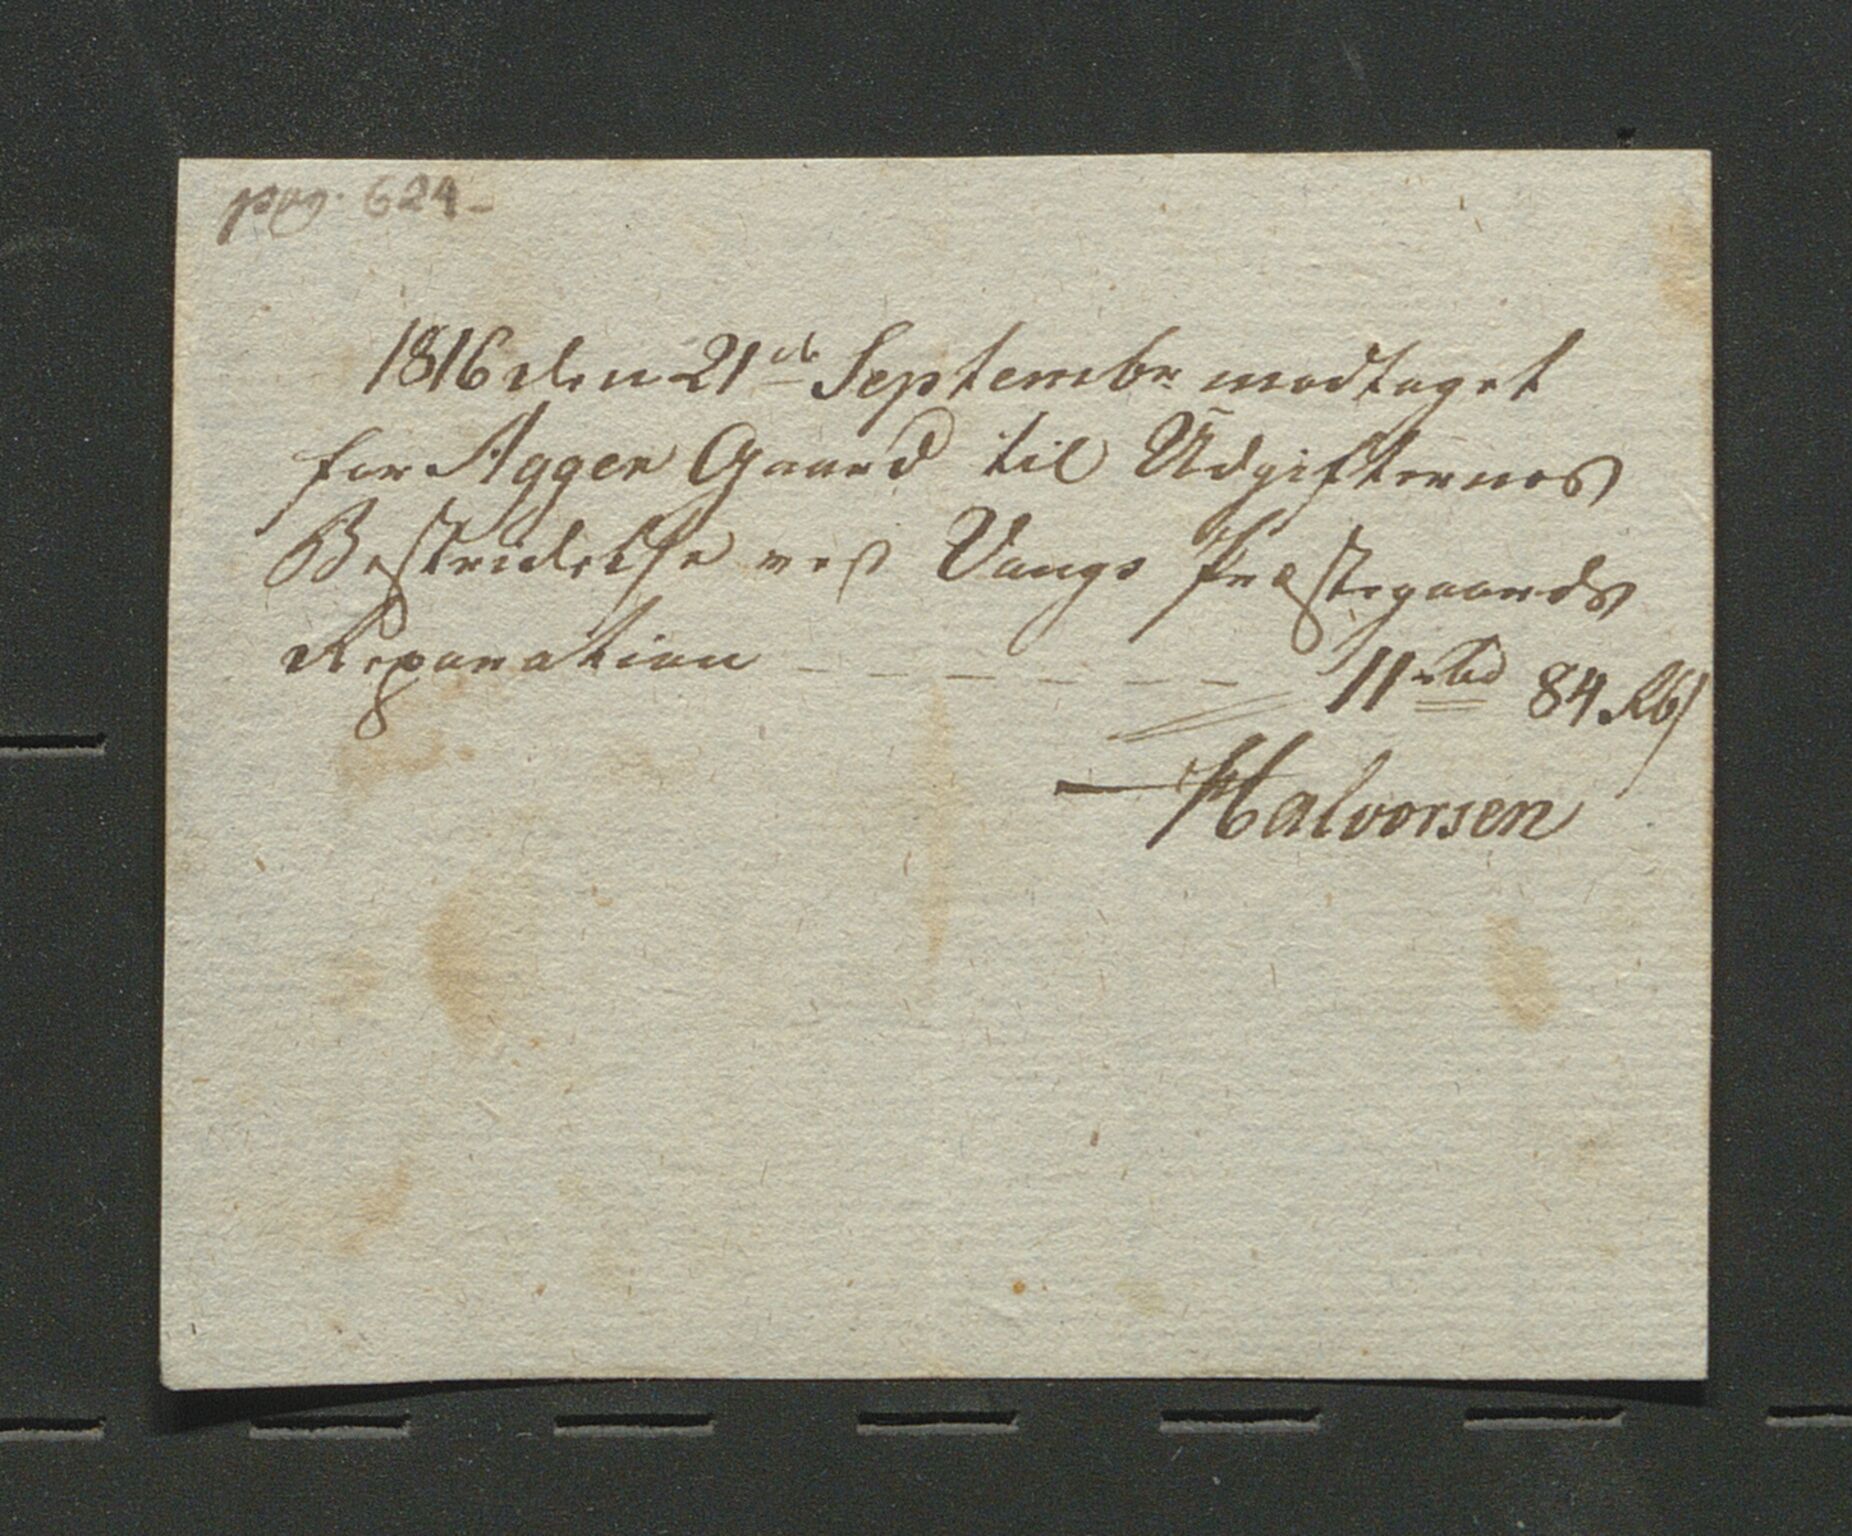 pag. 624
1816 den 21de Septembr modtaget
for Agger Gaard til Udgifternes
Bestridelse ved Vangs Præstegaards
Reparation - - - - - - 11 rbd 84 Rbs
Halvorsen